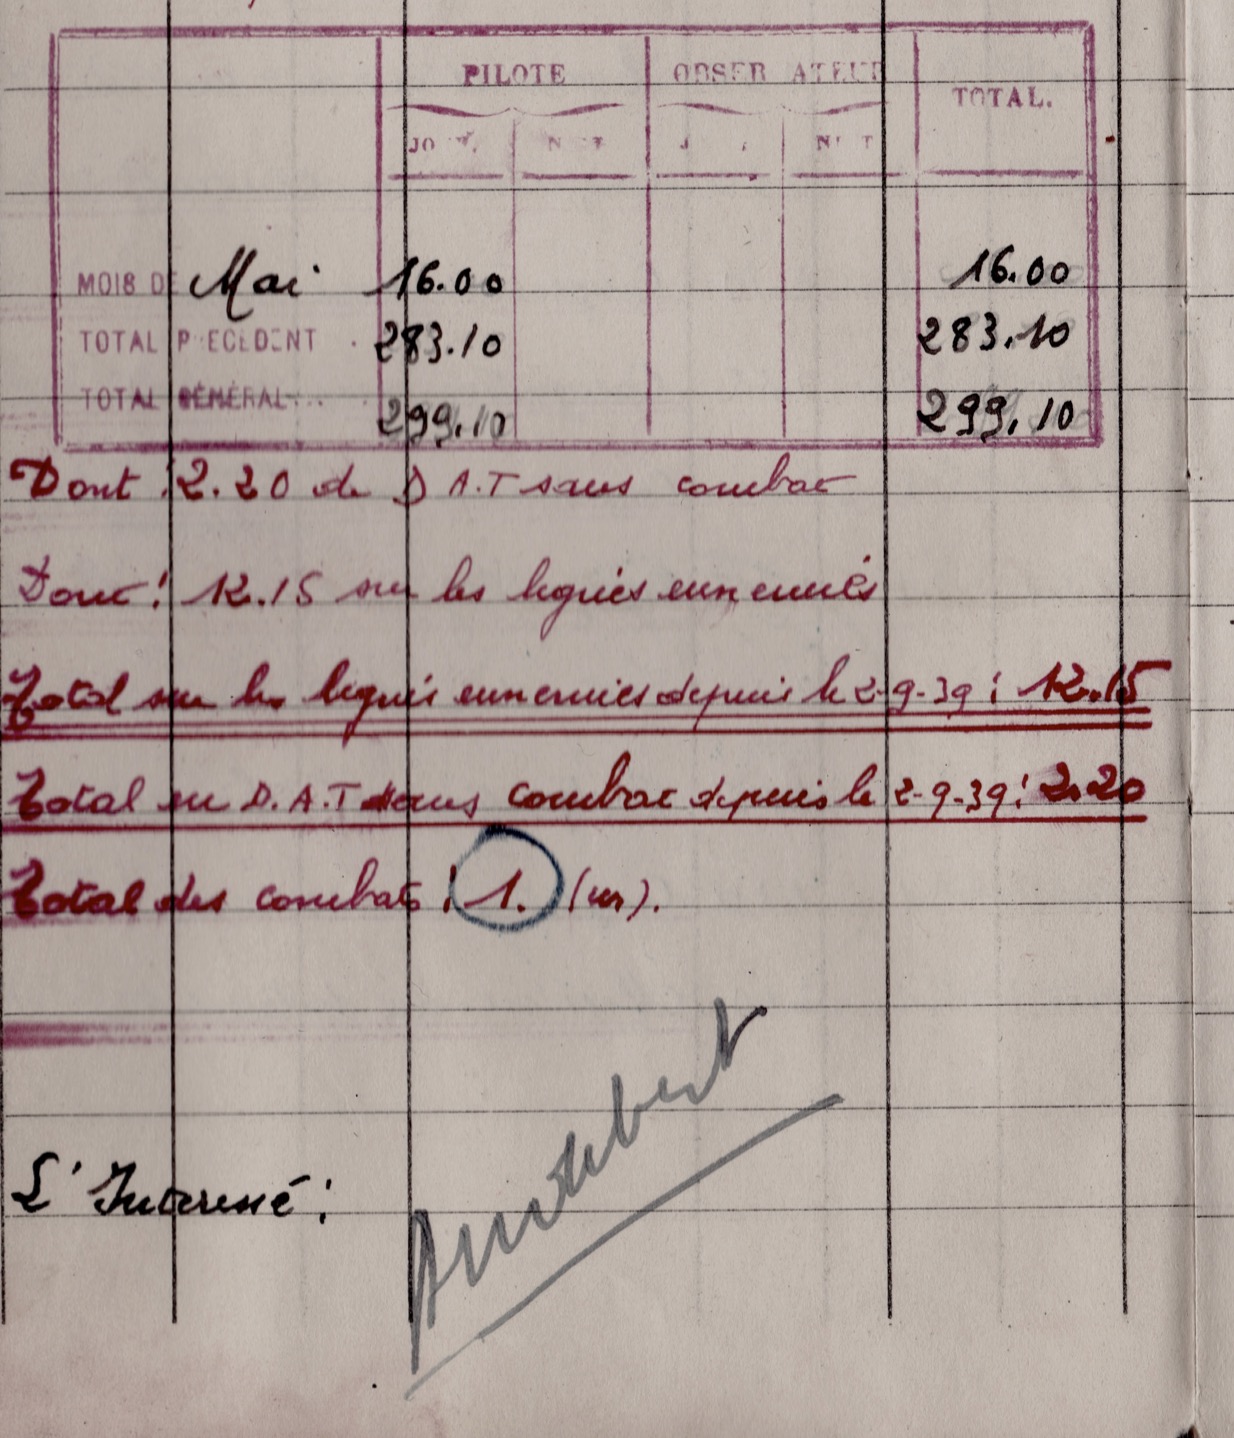 PILOTE OBSERVATEUR TOTAL.
JOUR. NUIT JOUR NUIT
MOIS DE Mai 16.00 16.00
TOTAL PRECEDENT . 283.10 283.10
TOTAL GÉNÉRAL... 299.10 299.10
Dont : 2.20 de D A.T sans combat
Dont : 12.15 sur les lignes ennemies
Total sur les lignes ennemies depuis le 2-9-39 : 12.15
Total en D.A.T sans combat depuis le 2-9-39 : 2.20
Total des combats : 1. (un).
L'Intéressé :